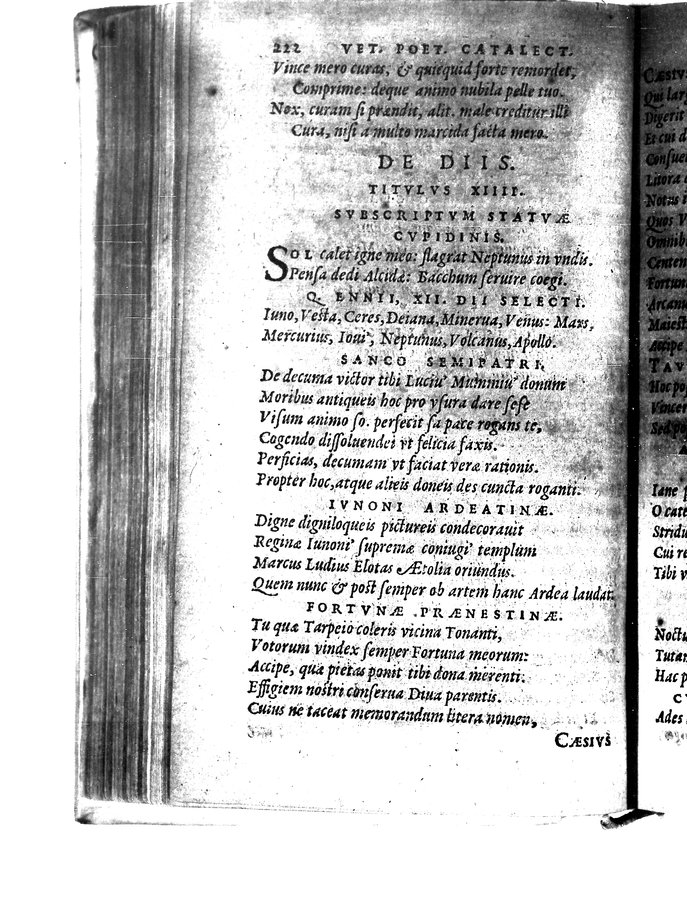 222 VET. POET. CATALECT.
Vince mero curas, & quicquid forte remordet,
Comprime: deque animo nubila pelle tuo.
Nox, curam si prændit, alit. male creditur illi
Cura, nisi a multo marcida facta mero.
DE DIIS.
TITVLVS XIIII.
SVBSCRIPTVM STATVÆ
CVPIDINIS.
SOL calet igne meo: flagrat Neptunus in vndis.
Pensa dedi Alcidæ: Bacchum seruire coegi.
Q. ENNII, XII. DII SELECTI.
Iuno, Vesta, Ceres, Deiana, Minerua, Venus: Mars,
Mercurius, Ioui', Neptunus, Volcanus, Apollo.
SANCO SEMIPATRI.
De decuma victor tibi Luciu' Mummiu' donum
Moribus antiqueis hoc pro vsura dare sese
Visum animo so. perfecit sa pace rogans te,
Cogendo dissoluendei vt felicia faxis.
Perficias, decumam vt faciat veræ rationis.
Propter hoc, atque alieis doneis des cuncta roganti.
IVNONI ARDEATINÆ.
Digne digniloqueis pictureis condecorauit
Reginæ Iunoni' supremæ coniugi' templum
Marcus Ludius Elotas Ætolia oriundus.
Quem nunc & post semper ob artem hanc Ardea laudat.
FORTVNÆ PRÆNESTINÆ.
Tu quæ Tarpeio coleris vicina Tonanti,
Votorum vindex semper Fortuna meorum:
Accipe, quæ pietas ponit tibi dona merenti.
Effigiem nostri conserua Diua parentis.
Cuius ne taceat memorandum litera nomen,
CÆSIVS
CÆSIV
Qui lar
Digerit
Et cui d
Consue
Litora
Notus i
Quos V
Omnib
Centen
Fortun
Arcan
Maiest
Accipe
TAV
Hoc po
Vincer
Sed po
Iane
O cate
Stridu
Cui re
Tibi v
Noctu
Tutan
Hac p
C
Ades